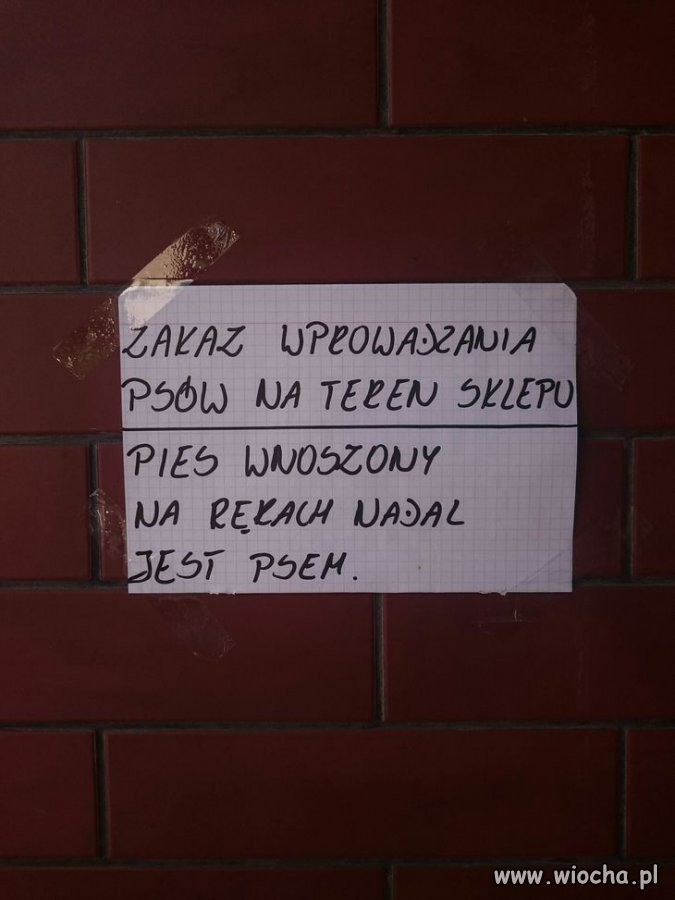 ZAKAZ WPROWADZANIA
PSÓW NA TEREN SKLEPU
PIES WNOSZONY
NA RĘKACH NADAL
JEST PSEM.
www.wiocha.pl